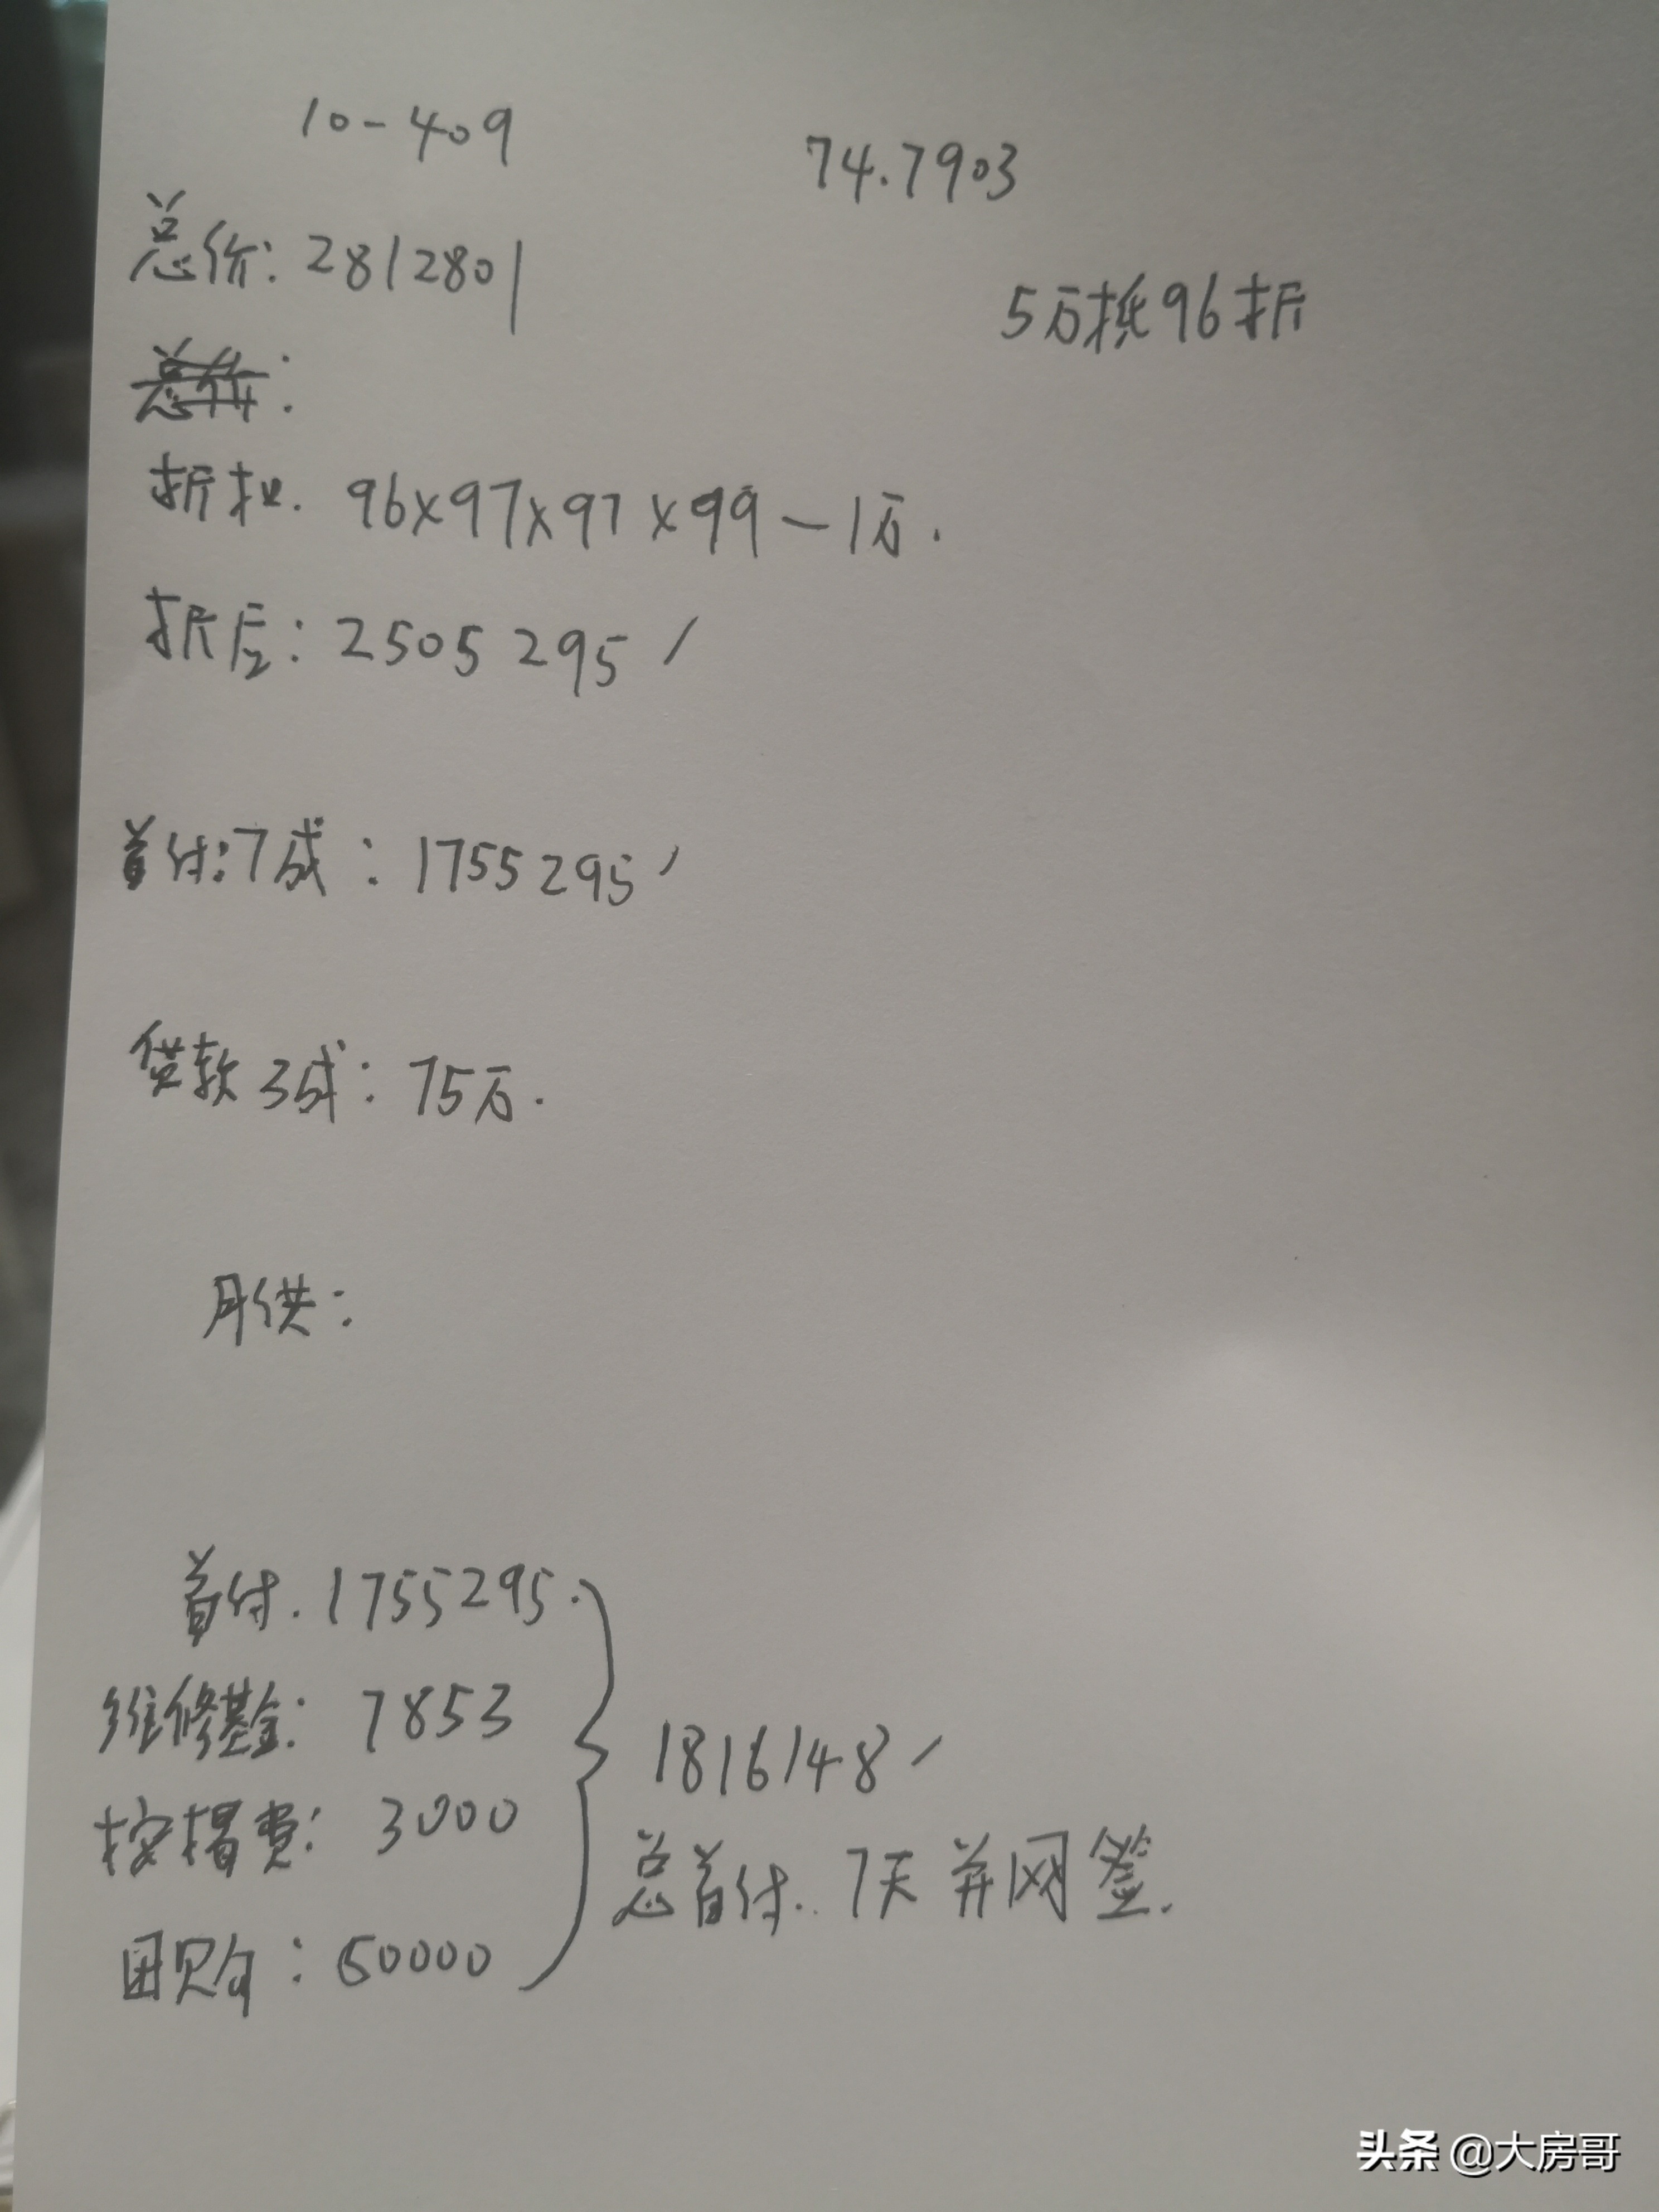 10-409
74.7903
总价: 2812801
5万抵96折
总价:
折扣. 96×97×97×99-1万.
折后: 2505295
首付:7成: 1755295
贷款3成: 75万.
月供:
首付. 1755295.
维修基金: 7853
按揭费: 3000
团购: 50000
1816148
总首付. 7天并网签.
头条 @大房哥